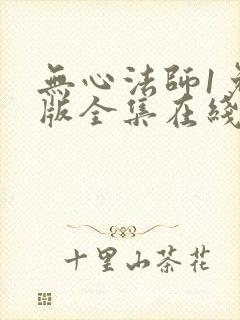 無心法師1
版全集在綫
十里山茶花